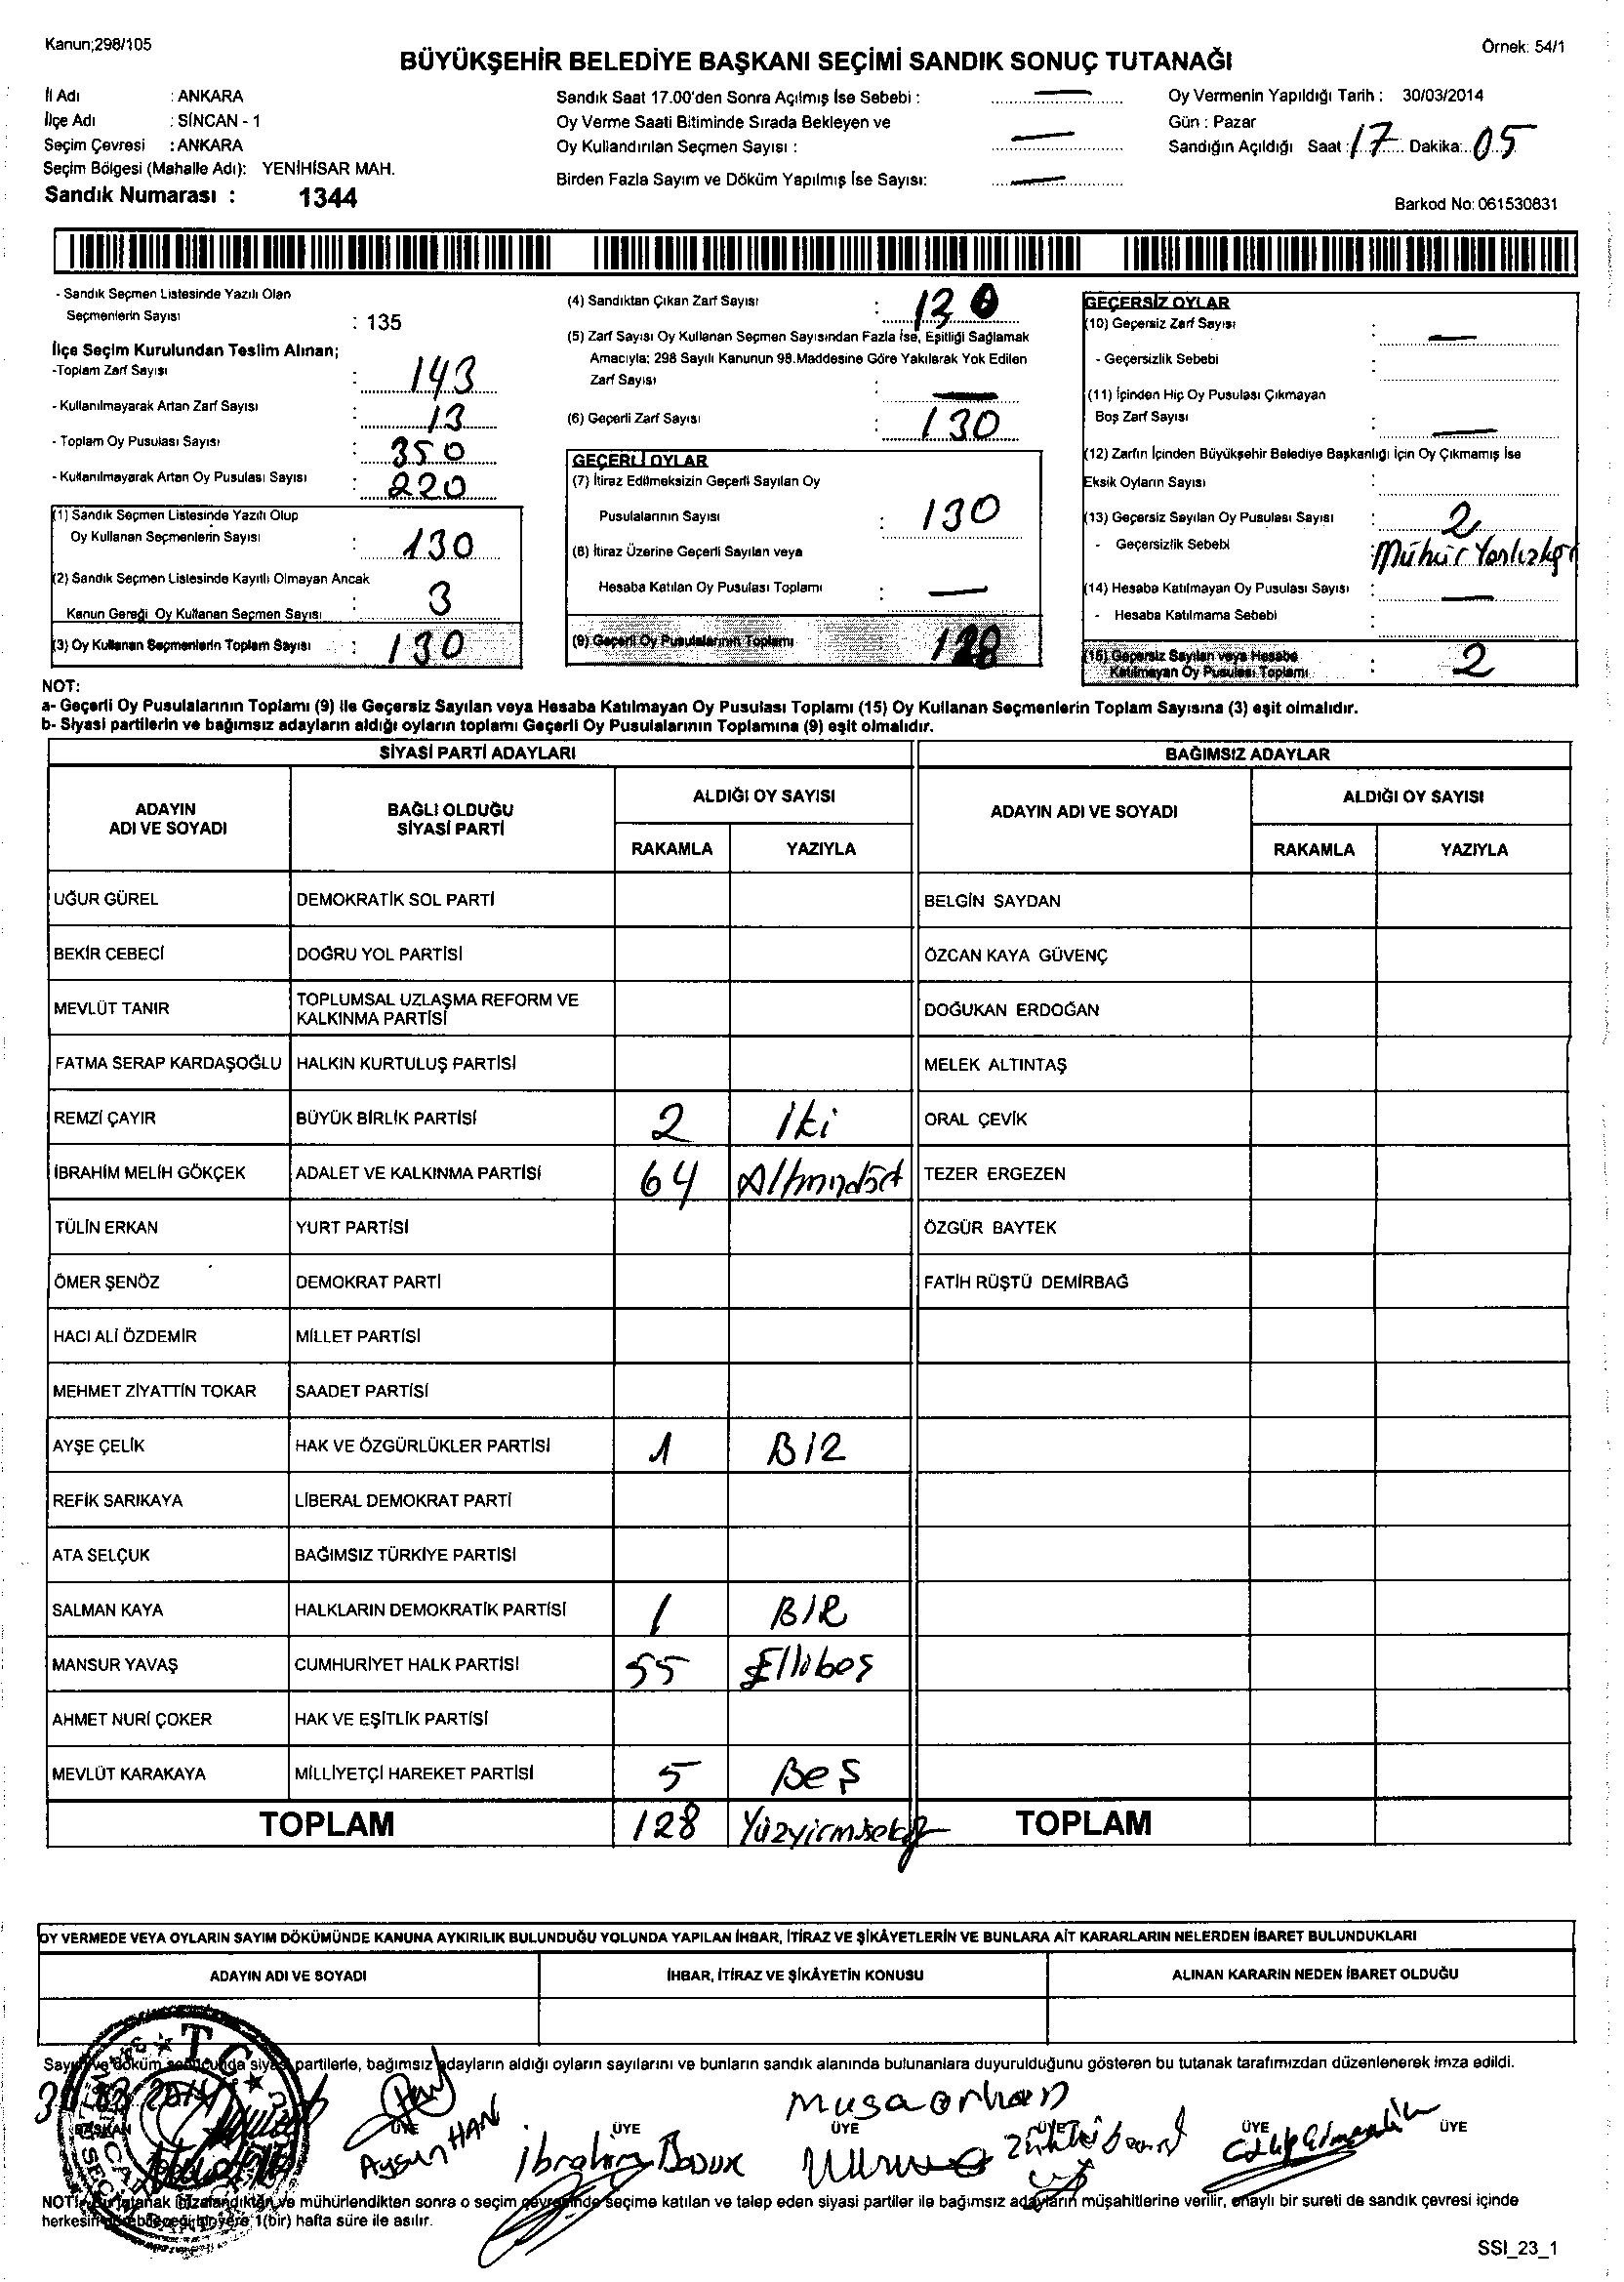 Kanun;298/105
Örnek: 54/1
BÜYÜKŞEHİR BELEDİYE BAŞKANI SEÇİMİ SANDIK SONUÇ TUTANAĞI
İl Adı : ANKARA
İlçe Adı : SİNCAN - 1
Seçim Çevresi : ANKARA
Seçim Bölgesi (Mahalle Adı): YENİHİSAR MAH.
Sandık Numarası : 1344
Sandık Saat 17.00'den Sonra Açılmış İse Sebebi : —
Oy Verme Saati Bitiminde Sırada Bekleyen ve
Oy Kullandırılan Seçmen Sayısı : —
Birden Fazla Sayım ve Döküm Yapılmış İse Sayısı: —
Oy Vermenin Yapıldığı Tarih : 30/03/2014
Gün : Pazar
Sandığın Açıldığı Saat : 17 Dakika: 05
Barkod No: 061530831
- Sandık Seçmen Listesinde Yazılı Olan
Seçmenlerin Sayısı : 135
İlçe Seçim Kurulundan Teslim Alınan;
-Toplam Zarf Sayısı : 143
- Kullanılmayarak Artan Zarf Sayısı : 13
- Toplam Oy Pusulası Sayısı : 350
- Kullanılmayarak Artan Oy Pusulası Sayısı : 220
(1) Sandık Seçmen Listesinde Yazılı Olup
Oy Kullanan Seçmenlerin Sayısı : 130
(2) Sandık Seçmen Listesinde Kayıtlı Olmayan Ancak
Kanun Gereği Oy Kullanan Seçmen Sayısı : 3
(3) Oy Kullanan Seçmenlerin Toplam Sayısı : 130
(4) Sandıktan Çıkan Zarf Sayısı : 130
(5) Zarf Sayısı Oy Kullanan Seçmen Sayısından Fazla İse, Eşitliği Sağlamak
Amacıyla; 298 Sayılı Kanunun 98.Maddesine Göre Yakılarak Yok Edilen
Zarf Sayısı : —
(6) Geçerli Zarf Sayısı : 130
GEÇERLİ OYLAR
(7) İtiraz Edilmeksizin Geçerli Sayılan Oy
Pusulalarının Sayısı : 130
(8) İtiraz Üzerine Geçerli Sayılan veya
Hesaba Katılan Oy Pusulası Toplamı : —
(9) Geçerli Oy Pusulalarının Toplamı 128
GEÇERSİZ OYLAR
(10) Geçersiz Zarf Sayısı : —
- Geçersizlik Sebebi :
(11) İçinden Hiç Oy Pusulası Çıkmayan
Boş Zarf Sayısı : —
(12) Zarfın İçinden Büyükşehir Belediye Başkanlığı İçin Oy Çıkmamış İse
Eksik Oyların Sayısı :
(13) Geçersiz Sayılan Oy Pusulası Sayısı : 2
- Geçersizlik Sebebi : Mühür
(14) Hesaba Katılmayan Oy Pusulası Sayısı : —
- Hesaba Katılmama Sebebi :
(15) Geçersiz Sayılan veya Hesaba
Katılmayan Oy Pusulası Toplamı : 2
NOT:
a- Geçerli Oy Pusulalarının Toplamı (9) ile Geçersiz Sayılan veya Hesaba Katılmayan Oy Pusulası Toplamı (15) Oy Kullanan Seçmenlerin Toplam Sayısına (3) eşit olmalıdır.
b- Siyasi partilerin ve bağımsız adayların aldığı oyların toplamı Geçerli Oy Pusulalarının Toplamına (9) eşit olmalıdır.
SİYASİ PARTİ ADAYLARI
BAĞIMSIZ ADAYLAR
ADAYIN ADI VE SOYADI
BAĞLI OLDUĞU SİYASİ PARTİ
ALDIĞI OY SAYISI
RAKAMLA YAZIYLA
ADAYIN ADI VE SOYADI
ALDIĞI OY SAYISI
RAKAMLA YAZIYLA
UĞUR GÜREL DEMOKRATİK SOL PARTİ BELGİN SAYDAN
BEKİR CEBECİ DOĞRU YOL PARTİSİ ÖZCAN KAYA GÜVENÇ
MEVLÜT TANIR TOPLUMSAL UZLAŞMA REFORM VE KALKINMA PARTİSİ DOĞUKAN ERDOĞAN
FATMA SERAP KARDAŞOĞLU HALKIN KURTULUŞ PARTİSİ MELEK ALTINTAŞ
REMZİ ÇAYIR BÜYÜK BİRLİK PARTİSİ 2 iki ORAL ÇEVİK
İBRAHİM MELİH GÖKÇEK ADALET VE KALKINMA PARTİSİ 64 Altmışdört TEZER ERGEZEN
TÜLİN ERKAN YURT PARTİSİ ÖZGÜR BAYTEK
ÖMER ŞENÖZ DEMOKRAT PARTİ FATİH RÜŞTÜ DEMİRBAĞ
HACI ALİ ÖZDEMİR MİLLET PARTİSİ
MEHMET ZİYATTİN TOKAR SAADET PARTİSİ
AYŞE ÇELİK HAK VE ÖZGÜRLÜKLER PARTİSİ 1 BİR
REFİK SARIKAYA LİBERAL DEMOKRAT PARTİ
ATA SELÇUK BAĞIMSIZ TÜRKİYE PARTİSİ
SALMAN KAYA HALKLARIN DEMOKRATİK PARTİSİ 1 BİR
MANSUR YAVAŞ CUMHURİYET HALK PARTİSİ 55 Ellibeş
AHMET NURİ ÇOKER HAK VE EŞİTLİK PARTİSİ
MEVLÜT KARAKAYA MİLLİYETÇİ HAREKET PARTİSİ 5 Beş
TOPLAM 128 Yüzyirmisekiz TOPLAM
OY VERMEDE VEYA OYLARIN SAYIM DÖKÜMÜNDE KANUNA AYKIRILIK BULUNDUĞU YOLUNDA YAPILAN İHBAR, İTİRAZ VE ŞİKÂYETLERİN VE BUNLARA AİT KARARLARIN NELERDEN İBARET BULUNDUKLARI
ADAYIN ADI VE SOYADI İHBAR, İTİRAZ VE ŞİKÂYETİN KONUSU ALINAN KARARIN NEDEN İBARET OLDUĞU
Sayım ve döküm sonucunda siyasi partilerle, bağımsız adayların aldığı oyların sayılarını ve bunların sandık alanında bulunanlara duyurulduğunu gösteren bu tutanak tarafımızdan düzenlenerek imza edildi.
T.C.
BAŞKAN ÜYE ÜYE ÜYE ÜYE ÜYE ÜYE
Aysun HAN
Musa orhan
NOT: Bu tutanak imzalandıktan ve mühürlendikten sonra o seçim çevresinde seçime katılan ve talep eden siyasi partiler ile bağımsız adayların müşahitlerine verilir, onaylı bir sureti de sandık çevresi içinde
herkesin görebileceği bir yere 1(bir) hafta süre ile asılır.
SSI_23_1